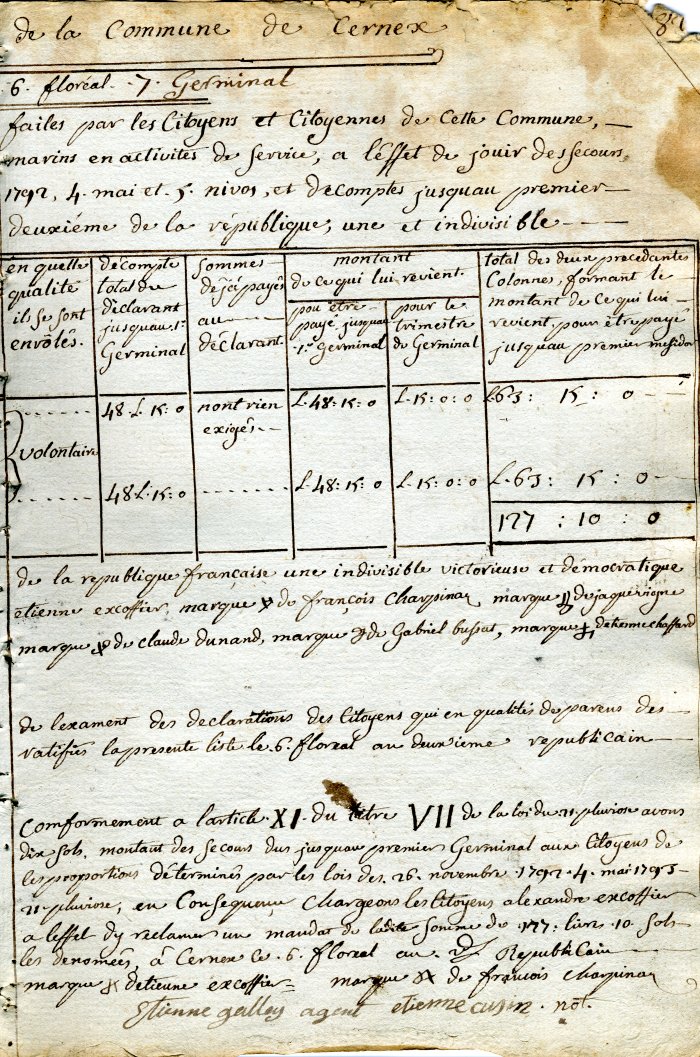 de la Commune de Cernex
6. floréal - 7. Germinal
faites par les Citoyens et Citoyennes de Cette Commune,
marins en activités de service, a l'effet de jouir des secours,
1792, 4. mai et 5. nivos, et decomptes jusquau premier
deuxiéme de la république, une et indivisible
en quelle qualité il se sont envôlés.
décompte total du déclarant jusquau 1r Germinal
sommes déjei payés au déclarant.
montant de ce qui lui revient.
pou être payé jusquau 1r Germinal
pour le trimestre du Germinal
total des deux precedantes Colonnes, formant le montant de Ce qui lui revient pour être payé jusquau premier messidor
48 £. 15: 0 nont rien exigés £. 48: 15: 0 £. 15: 0: 0 £. 63: 15: 0
volontaire
48 £. 15: 0 £. 48: 15: 0 £. 15: 0: 0 £. 63: 15: 0
127 : 10 : 0
de la republique française une indivisible victorieuse et démocratique
etienne excoffier, marque de françois Charpinaz marque de jaque
marque de claude dunand, marque de Gabriel bussat, marque detienne chaffard
de lexament des declarations des Citoyens qui en qualités de parens des
ratifiés la presente liste le 6. floreal au deuxieme republicain
Comformement a l'article XI. du titre VII de la loi du 21. pluviose avons
dix sols, montant des secours dus jusquau premier Germinal aux Citoyens de
les proportions détérminés par les lois des 26. novembre 1792. 4. mai 1793
21. pluviose, en Consequence Chargeons les Citoyens alexandre excoffier
a leffet dy reclamer un mandat de ladite somme de 177: livres 10. sols
les denomés, à Cernex Ce 6. floreal au Republicain
marque detienne excoffier marque de francois Charpinaz
Etienne agent etienne cusin. not.